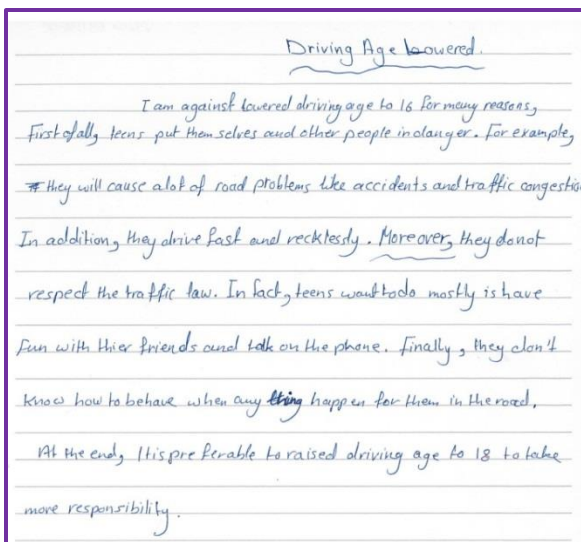 Driving Age Lowered.
I am against lowered driving age to 16 for many reasons,
First of all, teens put them selves and other people in danger. For example,
they will cause alot of road problems like accidents and traffic congestion
In addition, they drive fast and recklessly. Moreover, they donot
respect the traffic law. In fact, teens want todo mostly is have
fun with thier friends and talk on the phone. Finally, they don't
know how to behave when any thing happen for them in the road.
At the end, Itis preferable to raised driving age to 18 to take
more responsibility.